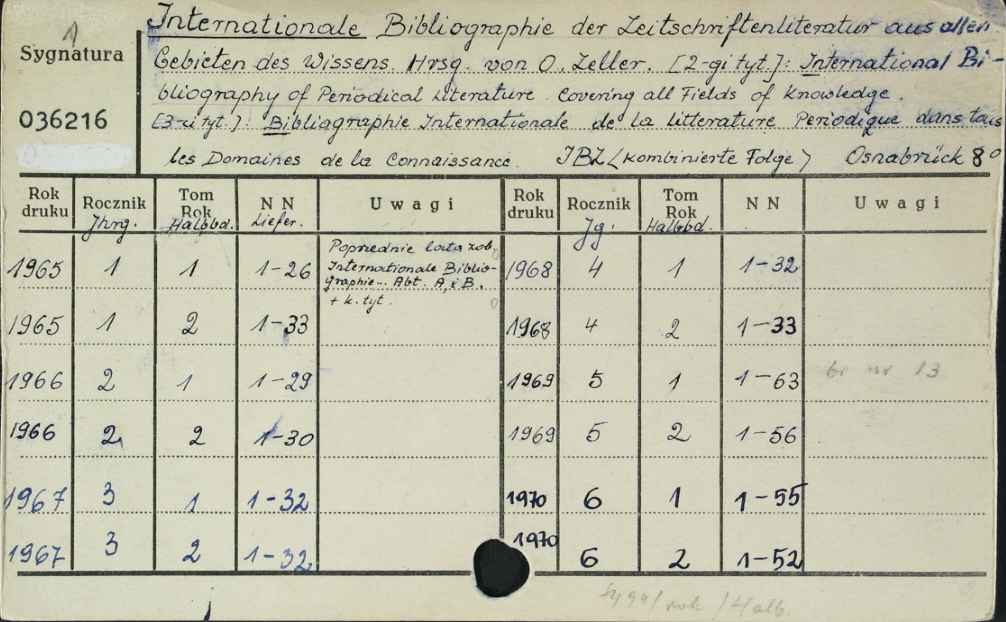 Internationale Bibliographie der Zeitschriftenliteratur aus allen
Sygnatura Gebieten des Wissens. Hrsg. von O. Zeller. [2-gi tyt.]: International Bi-
bliography of Periodical Literature. Covering all Fields of Knowledge.
036216 [3-ci tyt.]: Bibliagraphie Internationale de la litterature Periodique dans tous
les Domaines de la Connaissance. IBZ (Kombinierte Folge) Osnabrück 8°
Rok druku Rocznik Jhrg. Tom Rok Halbbd. NN Liefer. Uwagi Rok druku Rocznik Jg. Tom Rok Halbbd. NN Uwagi
Poprzednie lata zob.
1965 1 1 1-26 Internationale Biblio- 1968 4 1 1-32
graphie... Abt. A i B.
+ k. tyt.
1965 1 2 1-33 1968 4 2 1-33
1966 2 1 1-29 1969 5 1 1-63 br nr 13
1966 2 2 1-30 1969 5 2 1-56
1967 3 1 1-32 1970 6 1 1-55
1967 3 2 1-32 1970 6 2 1-52
rok / Halb.